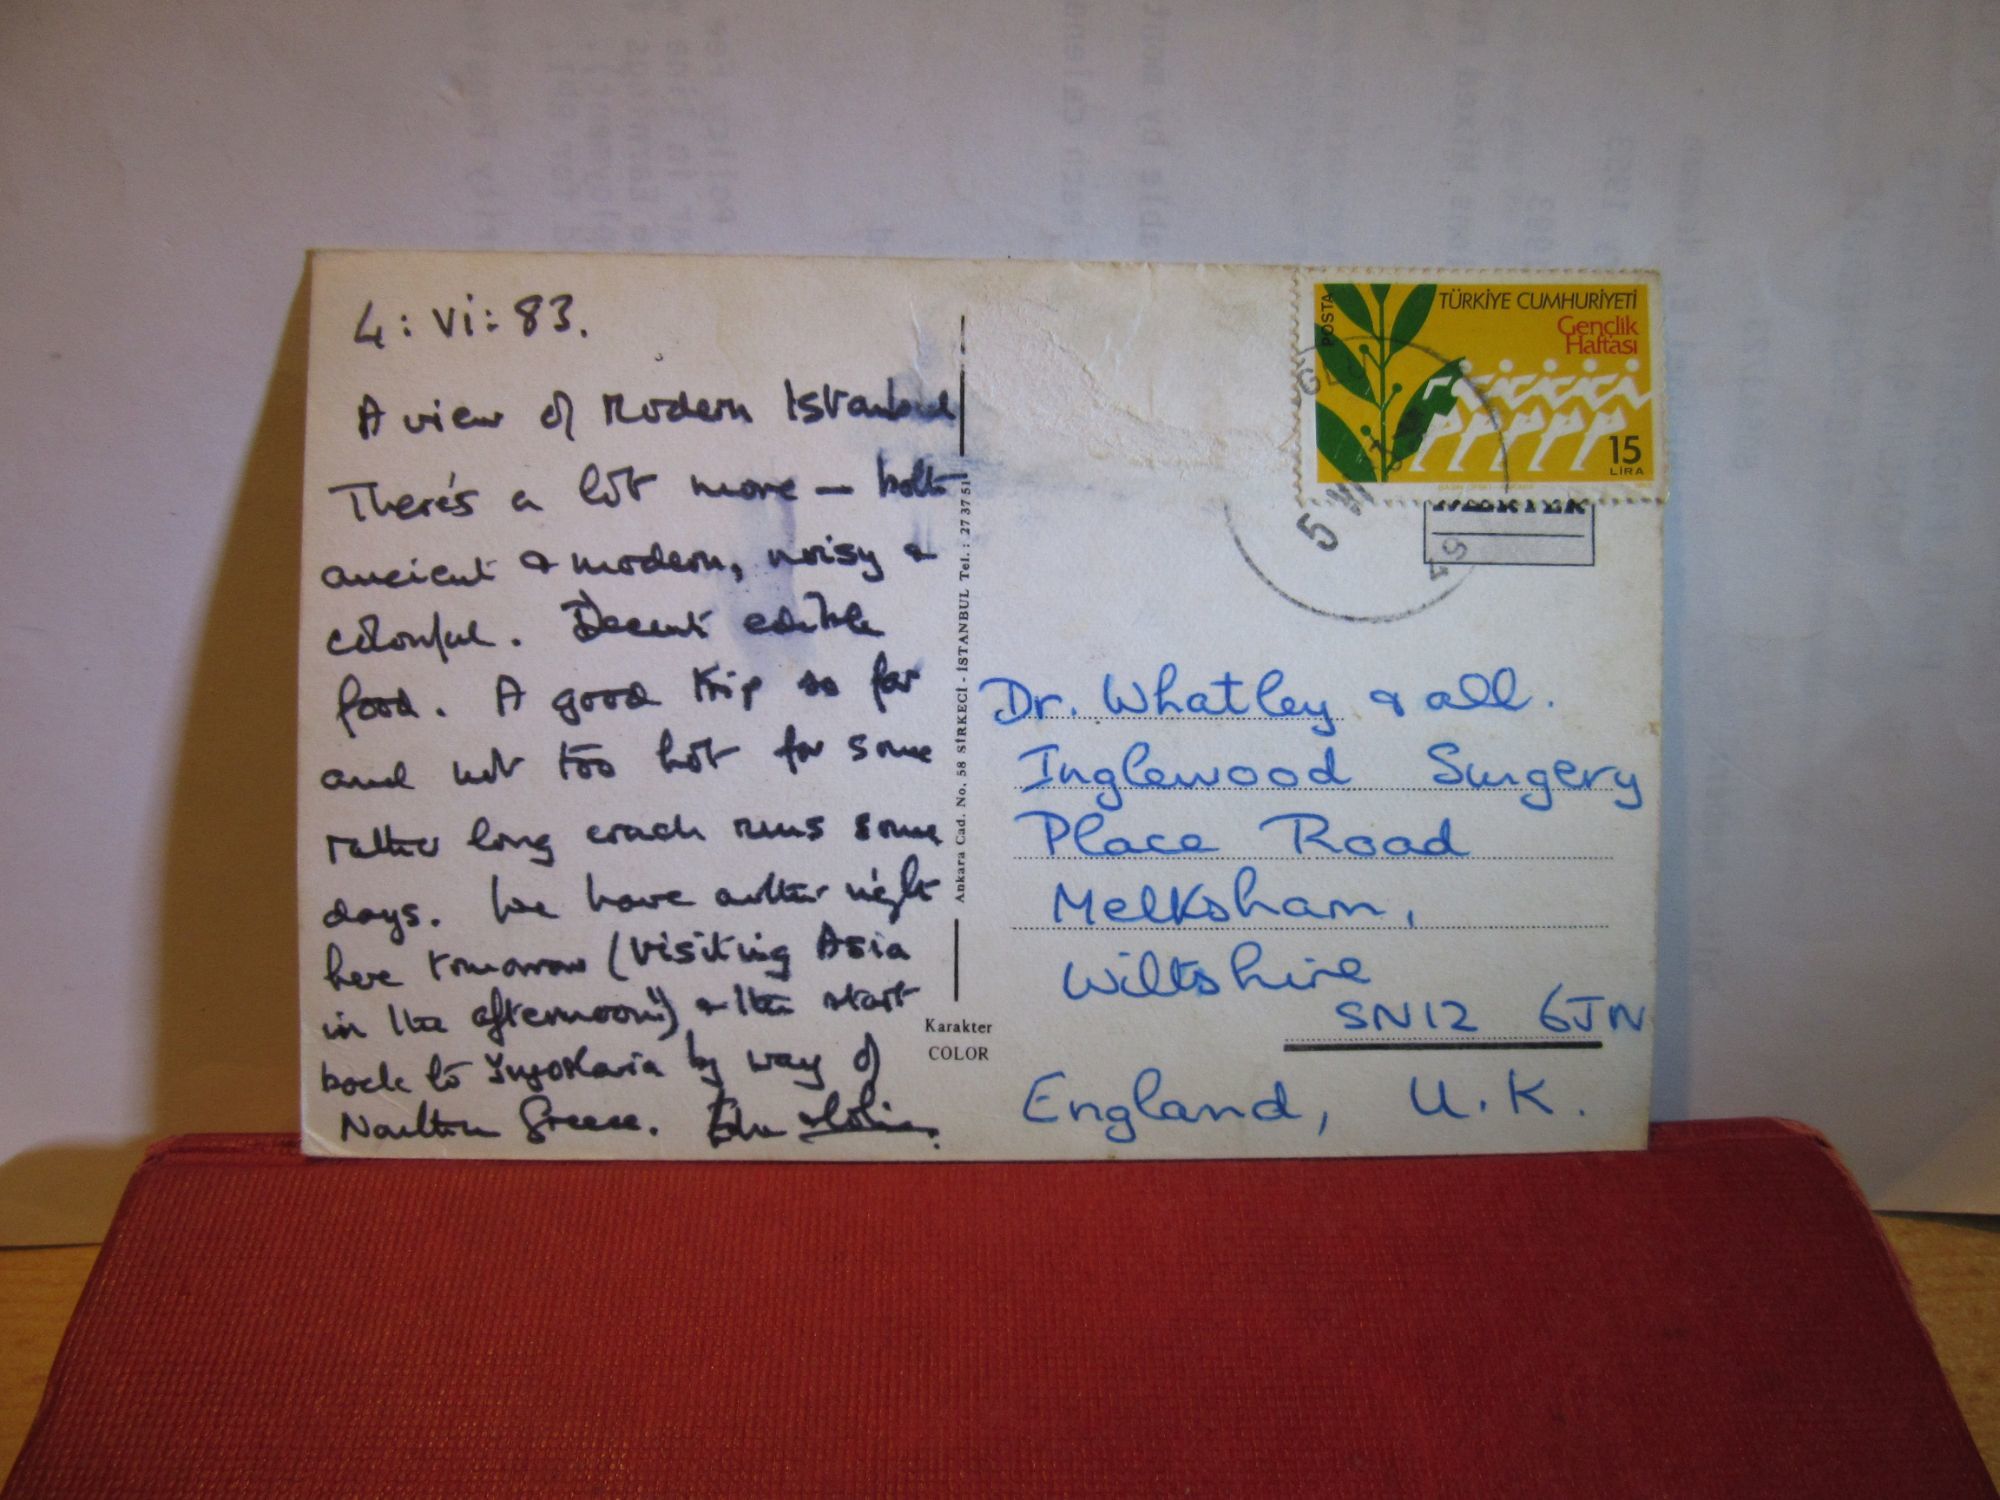 4: vi: 83.
A view of Modern Istanbul
There's a lot more — both
ancient & modern, noisy &
colourful. Decent edible
food. A good trip so far
and not too hot for some
rather long coach runs some
days. We have another night
here tomorrow (visiting Asia
in the afternoon!) & then start
back to Yugoslavia by way of
Northern Greece.
Ankara Cad. No. 58 SİRKECİ - İSTANBUL Tel. : 27 37 51
Karakter
COLOR
POSTA
TÜRKİYE CUMHURİYETİ
Gençlik
Haftası
15
LİRA
Dr. Whatley & all.
Inglewood Surgery
Place Road
Melksham,
Wiltshire
SN12 6JN
England, U.K.